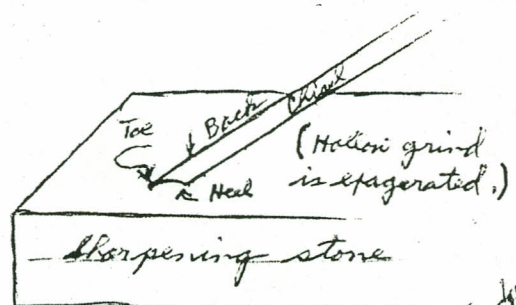 Toe
Back
Chisel
Heel
(Hollow grind
is exagerated.)
Sharpening stone